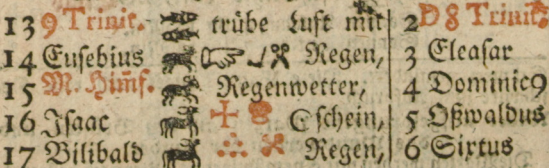 13 9 Trinit. trübe Luft mit 2 D 8 Trinit.
14 Eusebius Regen, 3 Eleasar
15 M. Him̃f. Regenwetter, 4 Dominic9
16 Isaac schein, 5 Oßwaldus
17 Bilibald Regen, 6 Sixtus